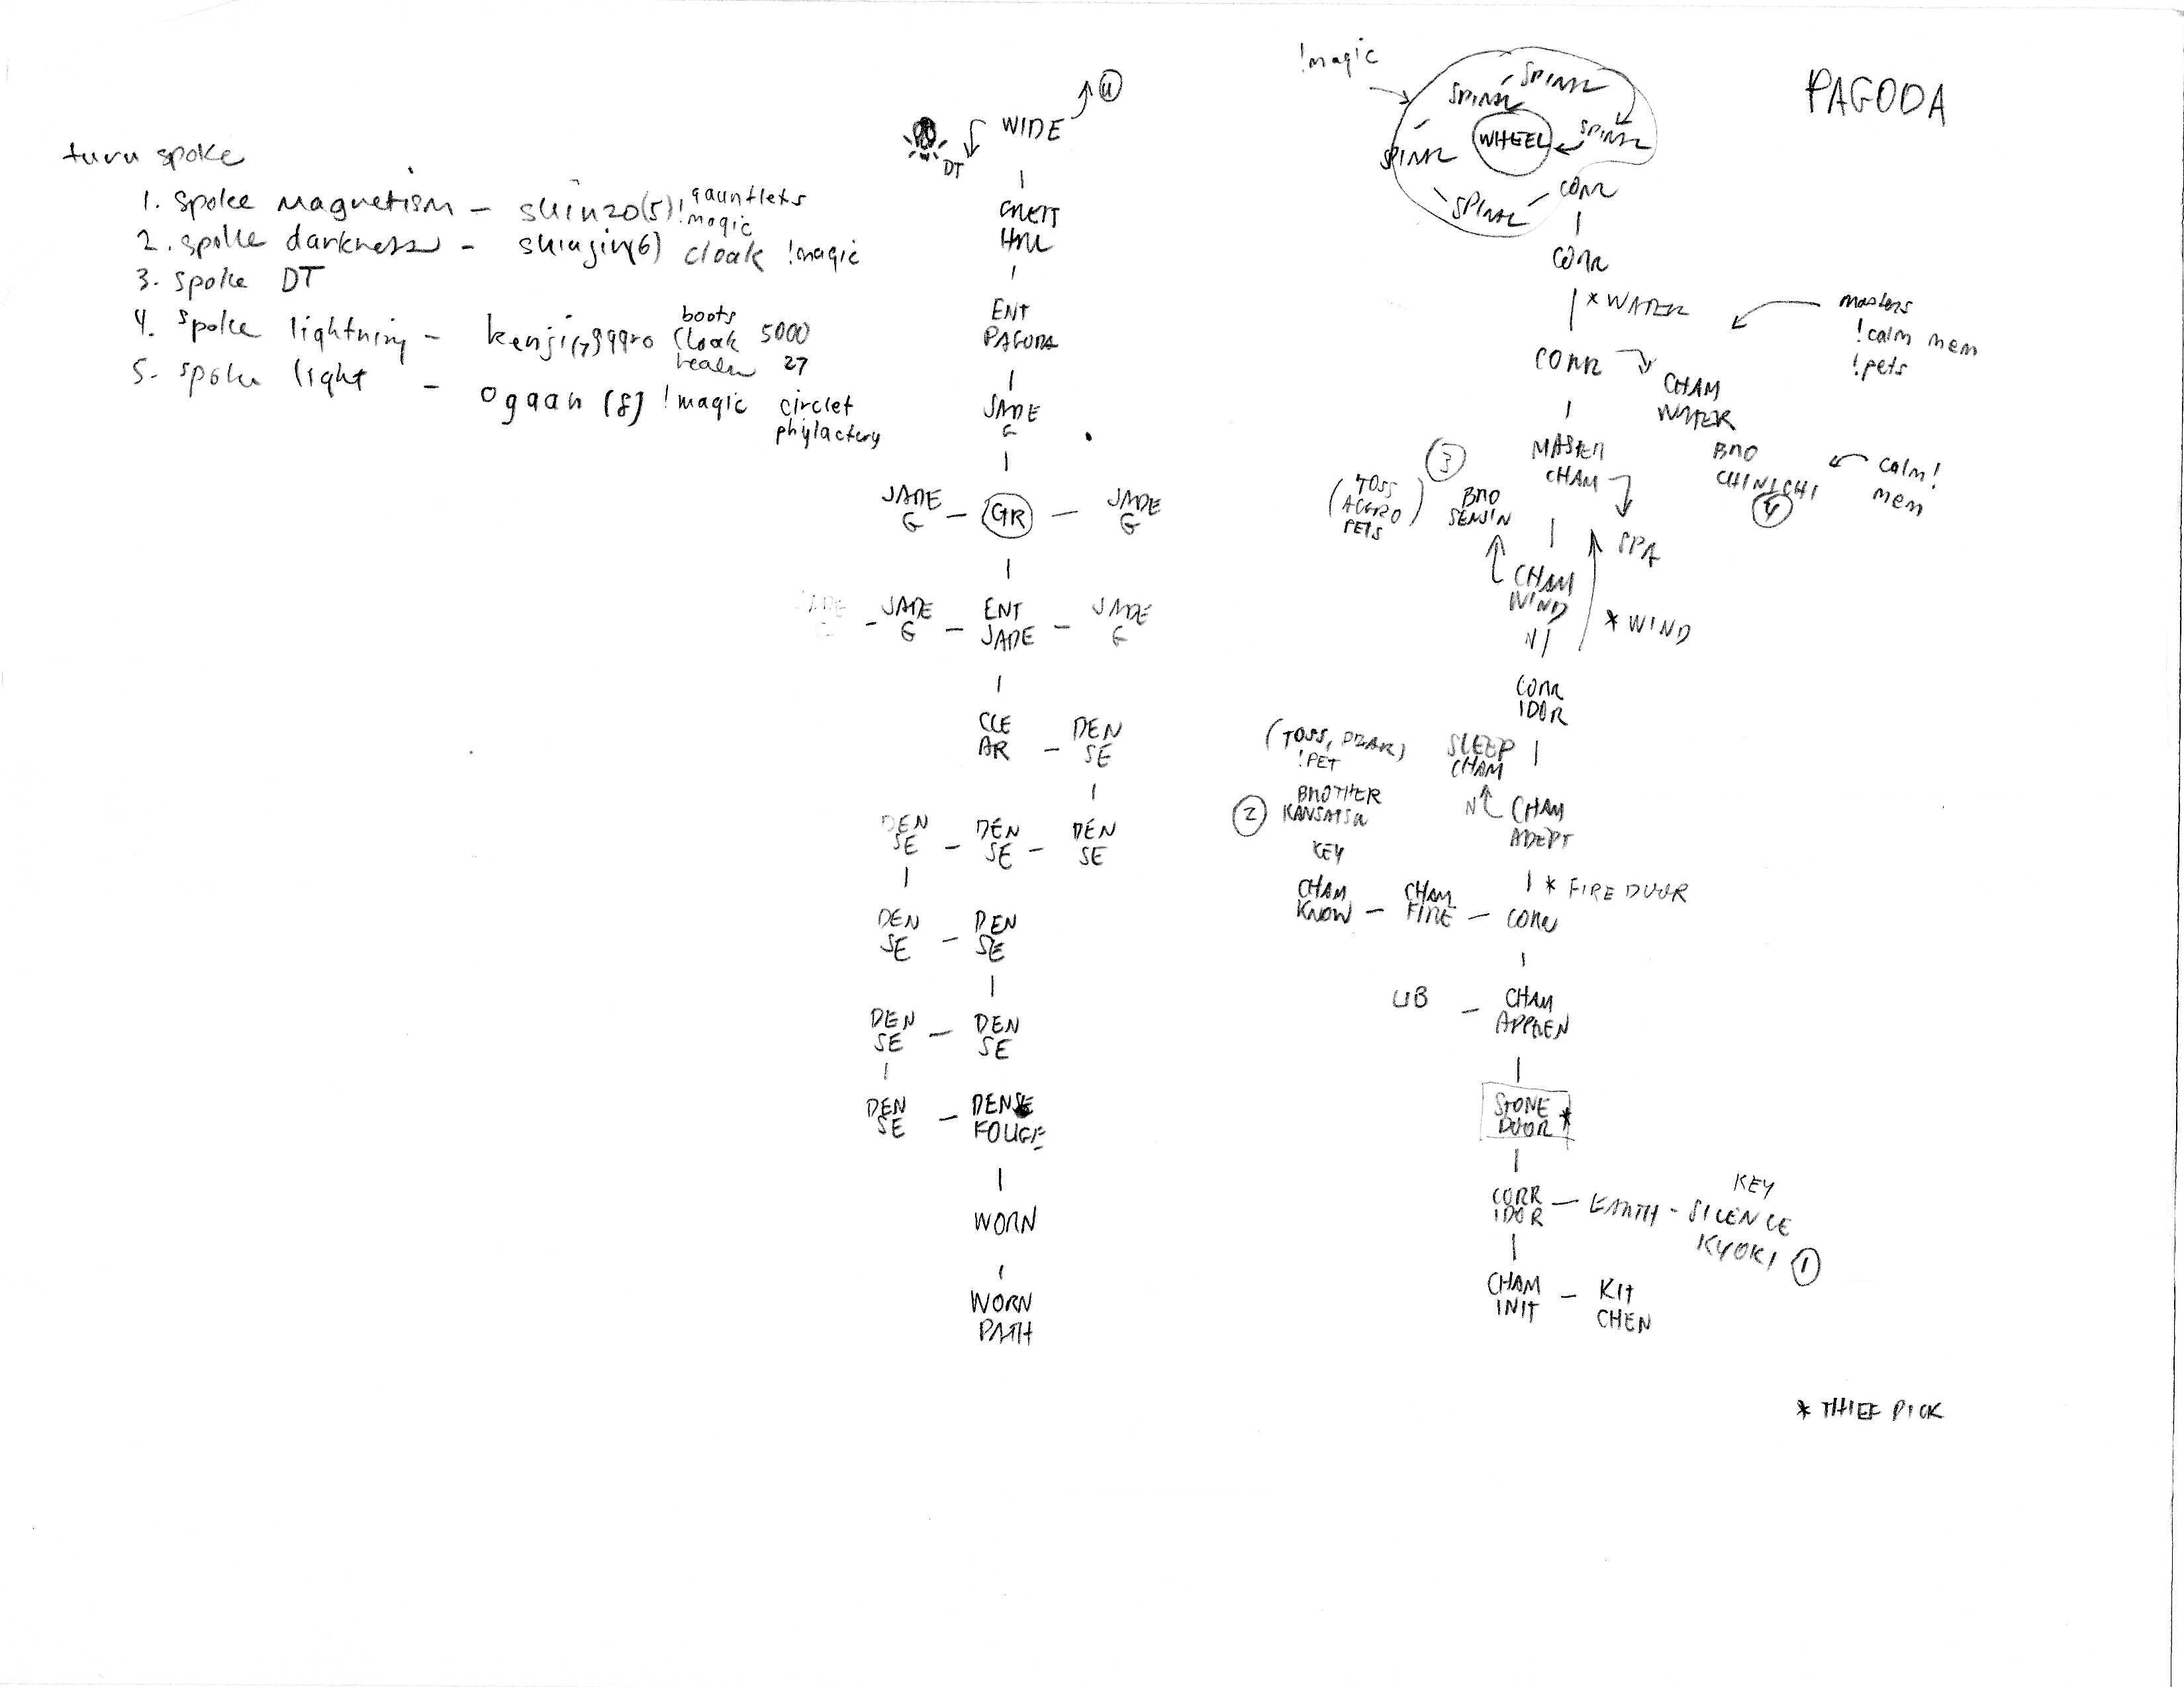 PAGODA
turn spoke
1. spoke magnetism - shinzo(5) !magic gauntlets
2. spoke darkness - shinjin(6) cloak !magic
3. spoke DT
4. spoke lightning - kenji(7) aggro boots cloak 5000
27
5. spoke light - ogaan (8) !magic circlet
phylactery
U
WIDE
DT
GREAT
HALL
ENT
PAGODA
JADE
G
JADE
G
GR
JADE
G
JADE
JADE
G
ENT
JADE
JADE
G
CLE
AR
DEN
SE
DEN
SE
DEN
SE
DEN
SE
DEN
SE
DEN
SE
DEN
SE
DEN
SE
DEN
SE
DENSE
WORN
WORN
PATH
!magic
SPIRAL
SPIRAL
SPIRAL
SPIRAL
SPIRAL
WHEEL
CORR
CORR
* WATER
masters
!calm mem
!pets
CORR
CHAM
WATER
BRO
CHINICHI
4
calm!
mem
MASTER
CHAM
SPA
3
BRO
SENSIN
(TOSS
AGGRO
PETS)
CHAM
WIND
N
* WIND
CORR
IDOR
SLEEP
CHAM
N
CHAM
ADEPT
(TOSS, DEAR)
!PET
2
BROTHER
KANSATSU
KEY
* FIRE DOOR
CHAM
KNOW
CHAM
FIRE
CORR
LIB
CHAM
APPREN
STONE
DOOR *
CORR
IDOR
EARTH
KEY
SILENCE
KYOKI 1
CHAM
INIT
KIT
CHEN
* THIEF PICK